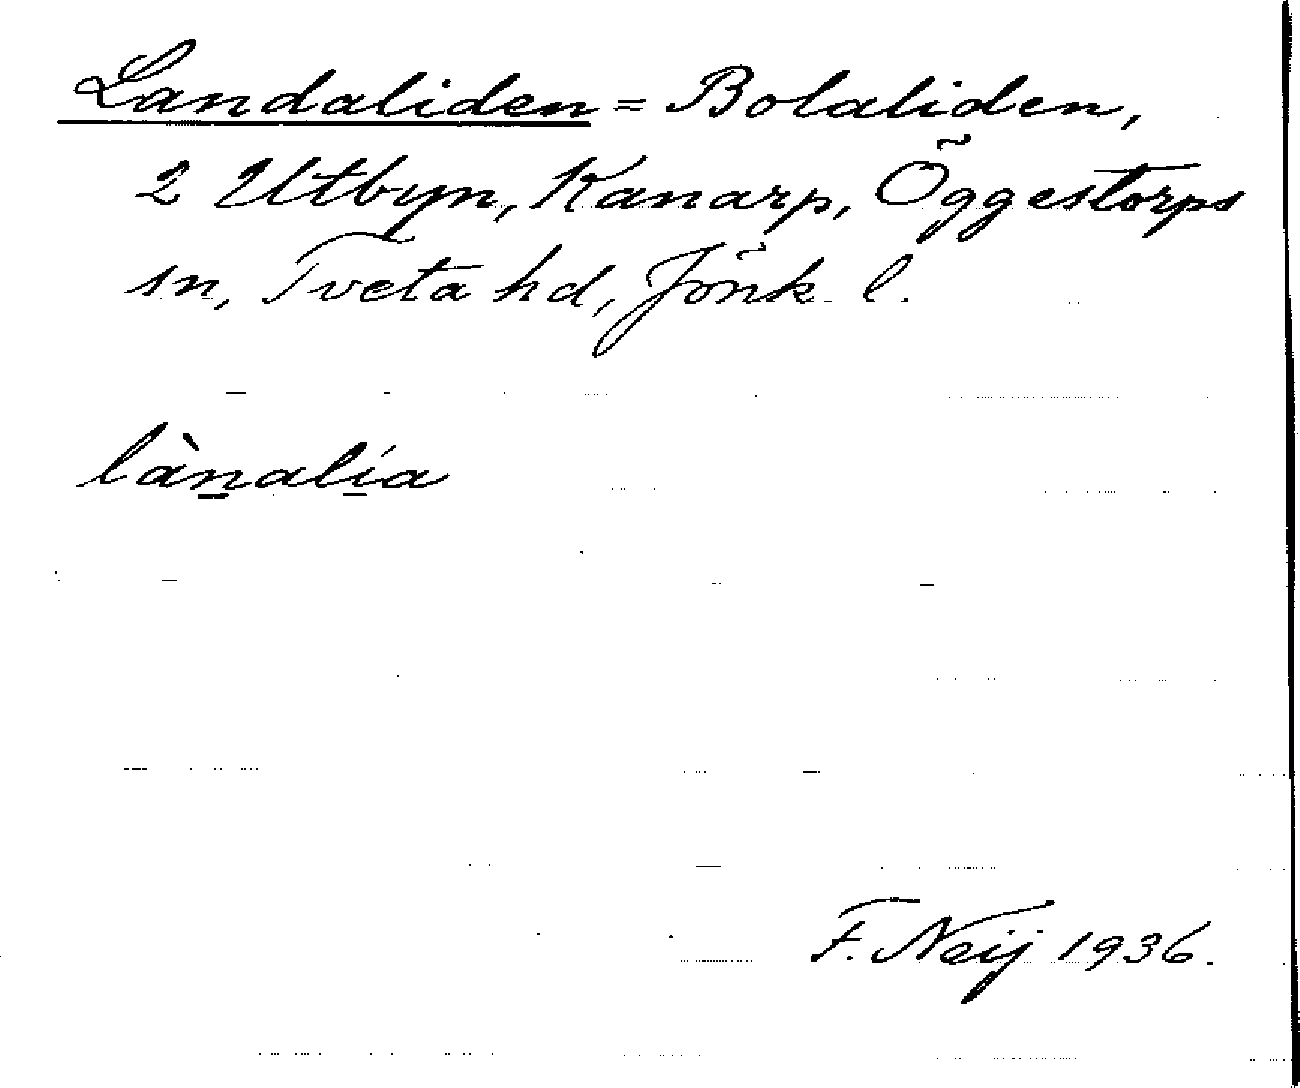 Landaliden = Bolaliden,
2 Utbyn, Kanarp, Öggestorps
sn, Tveta hd, Jönk. l.
lànalía
F. Neij 1936.